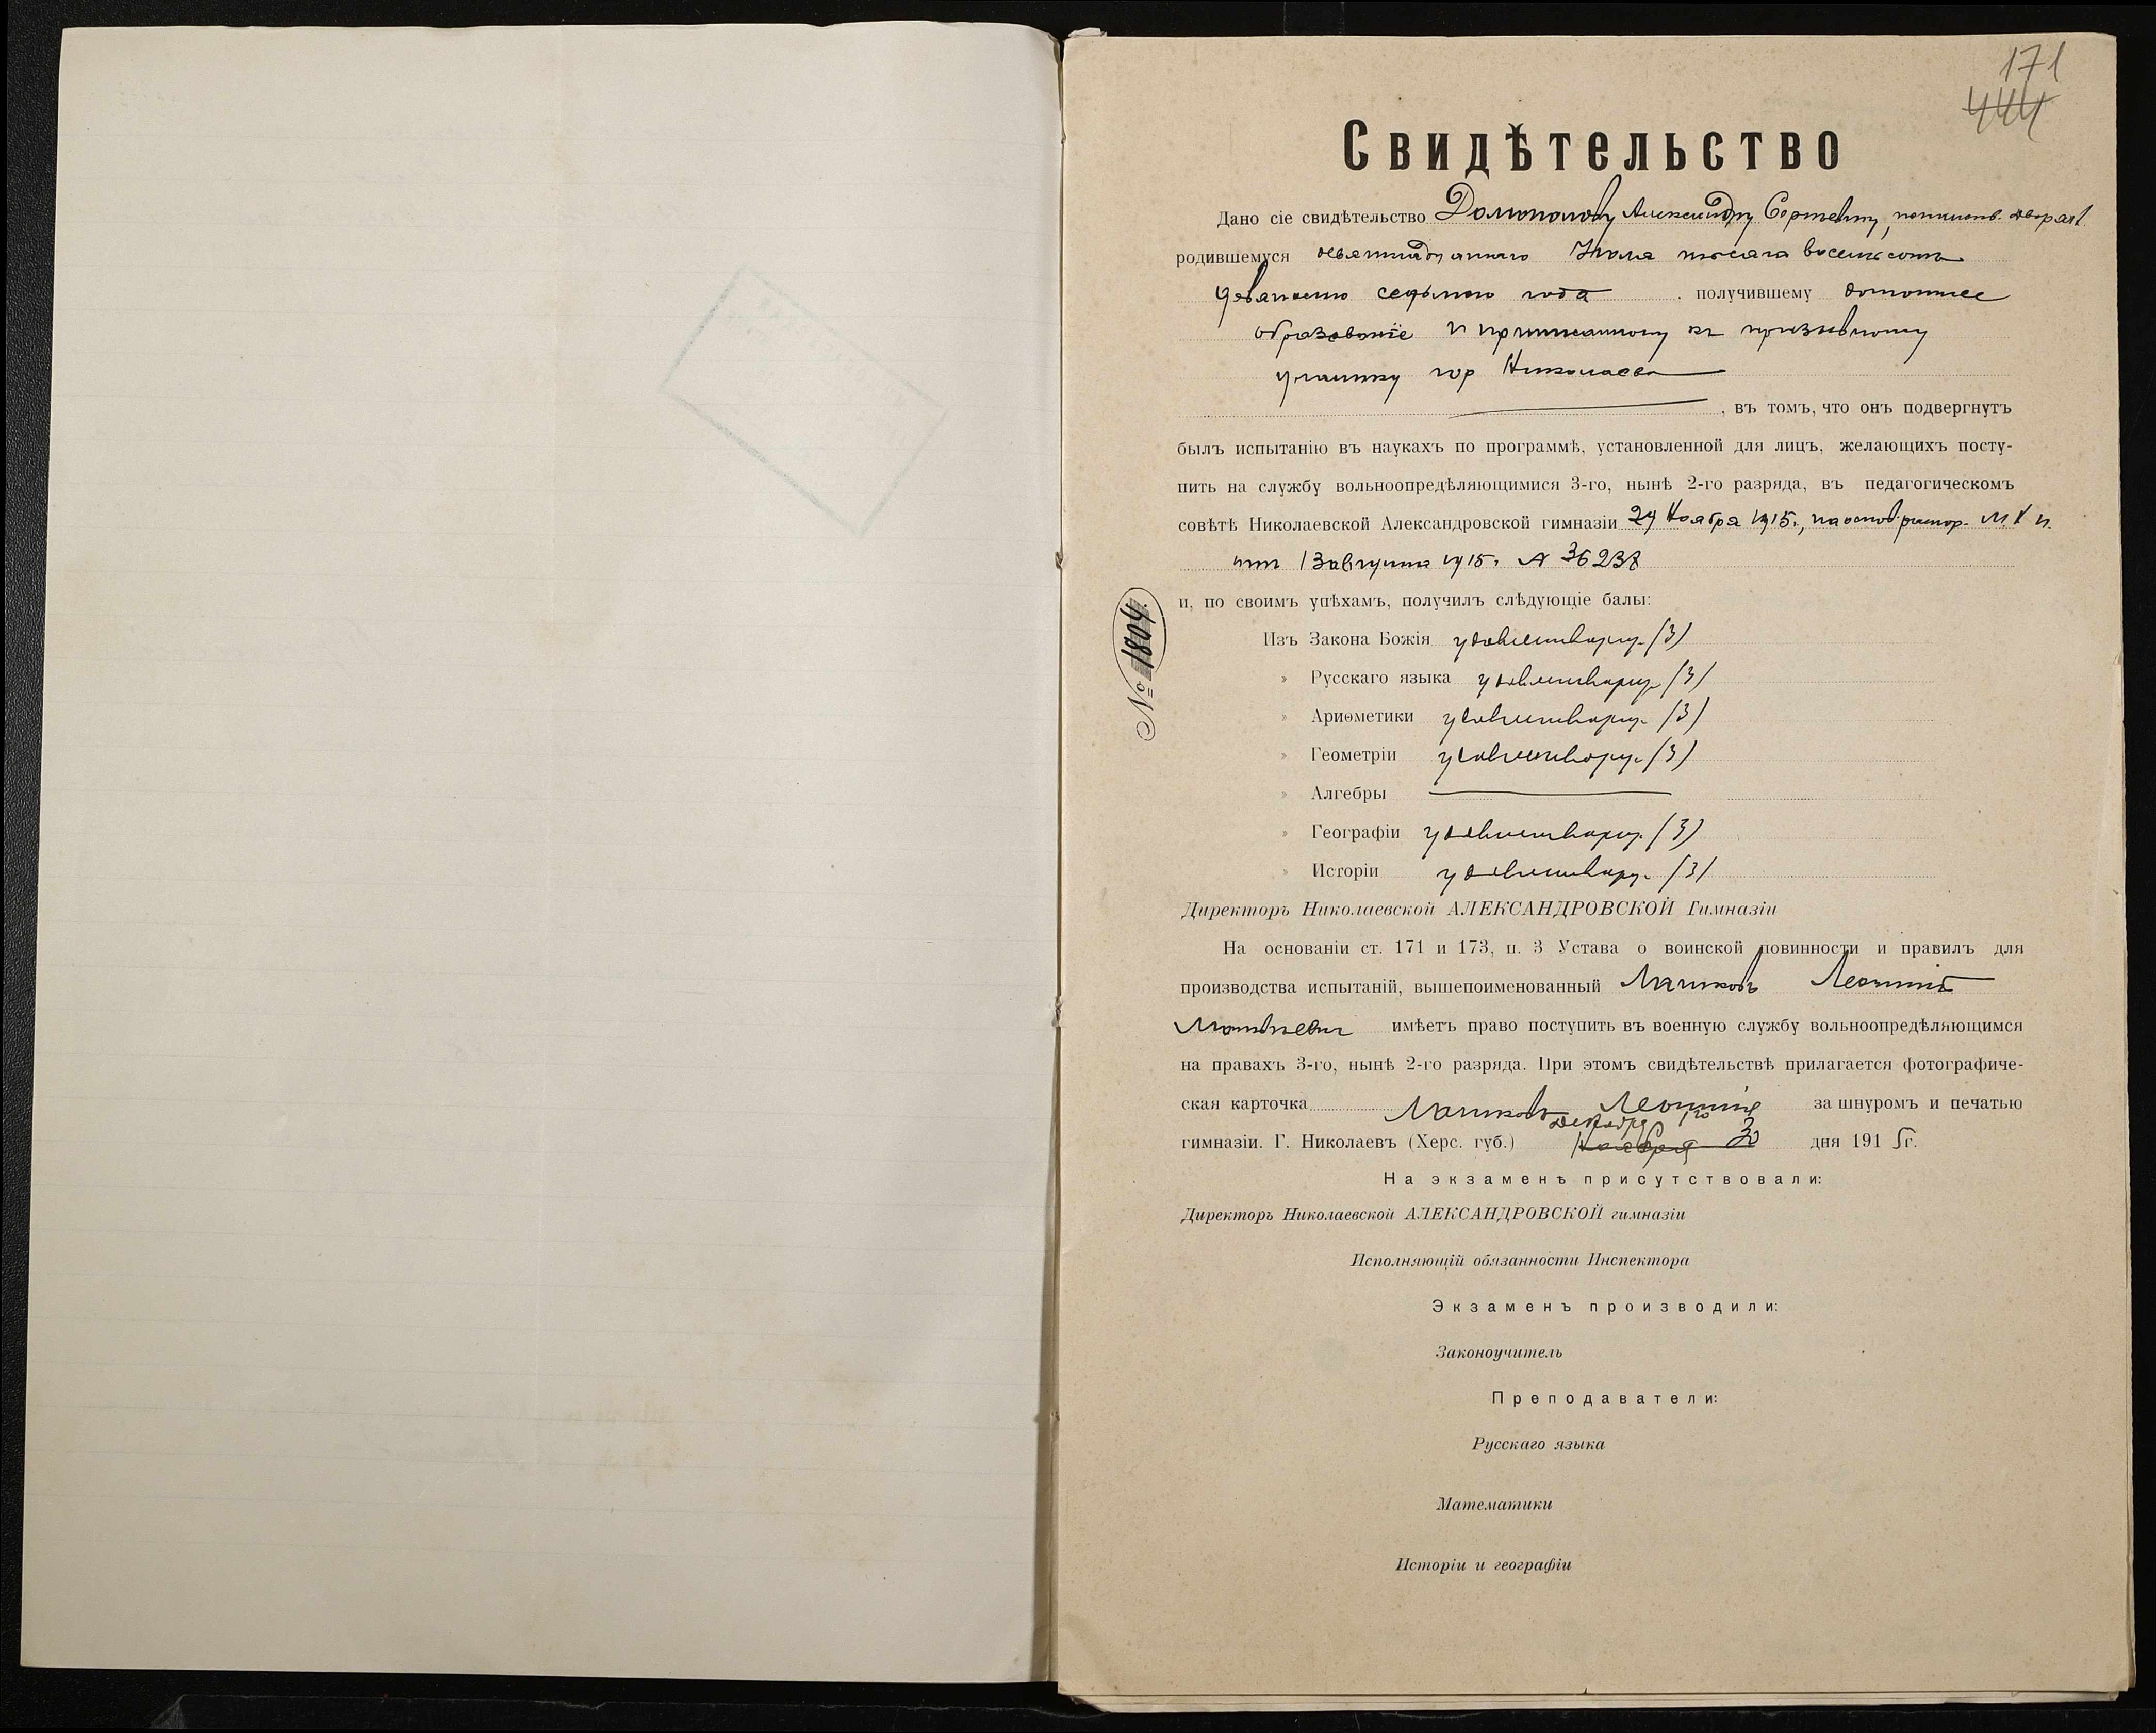 171
444
Свидѣтельство
Дано сіе свидѣтельство Александру Сергѣевичу, потомств. дворян.
родившемуся девятнадцатаго Іюля тысяча восемьсотъ
девяносто седьмого года . получившему домашнее
образованіе и приписанному къ призывному
участку гор Николаева
, въ томъ, что онъ подвергнутъ
былъ испытанію въ наукахъ по программѣ, установленной для лицъ, желающихъ посту-
пить на службу вольноопредѣляющимися 3-го, нынѣ 2-го разряда, въ педагогическомъ
совѣтѣ Николаевской Александровской гимназіи 24 Ноября 1915г., на основ. распор. М. Н. П.
отъ 13 августа 1915г. № 36237
и, по своимъ успѣхамъ, получилъ слѣдующіе балы:
№ 1804.
Изъ Закона Божія удовлетворит. (3)
» Русскаго языка удовлетворит. (3)
» Ариѳметики удовлетворит. (3)
» Геометріи удовлетворит. (3)
» Алгебры
» Географіи удовлетворит. (3)
» Исторіи удовлетворит. (3)
Директоръ Николаевской АЛЕКСАНДРОВСКОЙ Гимназіи
На основаніи ст. 171 и 173, п. 3 Устава о воинской повинности и правилъ для
производства испытаній, вышепоименованный Леонтій
Матвѣевичъ имѣетъ право поступить въ военную службу вольноопредѣляющимся
на правахъ 3-го, нынѣ 2-го разряда. При этомъ свидѣтельствѣ прилагается фотографиче-
ская карточка за шнуромъ и печатью
Декабря
гимназіи. Г. Николаевъ (Херс. губ.) Ноября 30 дня 1915г.
На экзаменѣ присутствовали:
Директоръ Николаевской АЛЕКСАНДРОВСКОЙ гимназіи
Исполняющій обязанности Инспектора
Экзаменъ производили:
Законоучитель
Преподаватели:
Русскаго языка
Математики
Исторіи и географіи